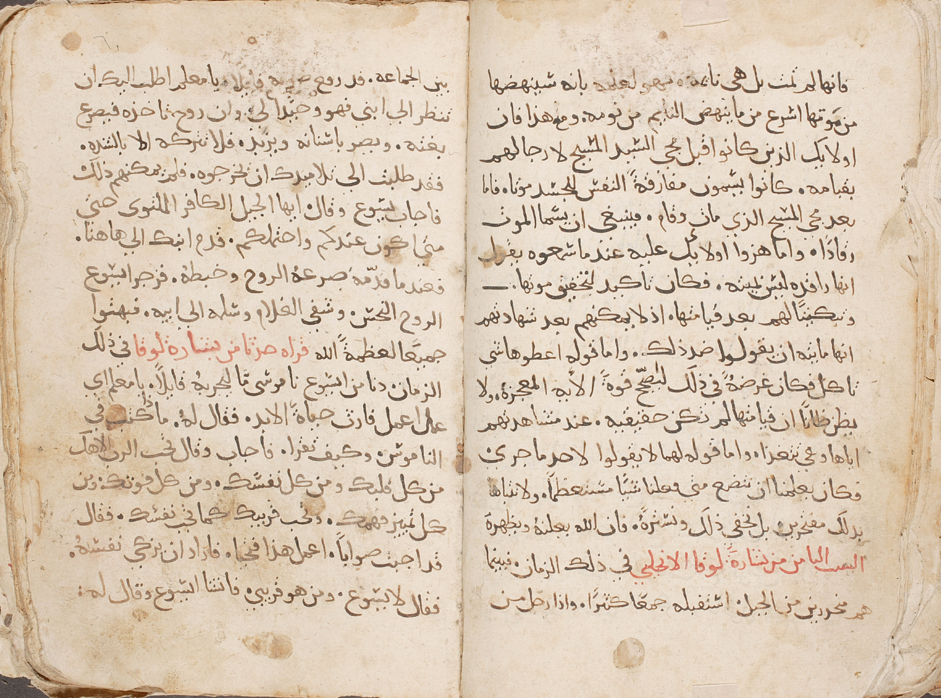 فانها لم تمت بل هي نائمة بانه سينهضها
من موتها اسرع من ما ينهض النايم من نومه. ومن هذا فان
اولايك الذين كانوا قبل مجي السيد المسيح لا رجا لهم
بقيامه. كانوا يسمون مفارقة النفس للجسد موتا، فاما
بعد مجي المسيح الذي مات وقام. فينبغي ان يسما الموت
رقادا، واما هزوا اولايك عليه عند ما سمعوه يقول
انها راقده ليس ميته. فكان تاكيد لتحقيق موتها.
وتبكيتا لهم بعد قيامتها. اذ لا يمكنهم بعد شهادتهم
انها مايته ان يقولوا ضد ذلك. واما قوله اعطوها شي
تاكل فكان غرضه في ذلك ليصحح قوة الايه المعجزة. ولا
يظن ظانا ان قيامتها لم تكن حقيقيه. عند مشاهدتهم
اياها وهي تتغدا، واما قوله لهما لا يقولوا لاحد ما جرى
فكان يعلمنا ان نتضع متى فعلنا شيا مستعظما. ولا نتباها
بذلك مفتخرين بل نخفي ذلك ونستره. فان الله يعلنه ويظهره
السبت الثامن من بشارة لوقا الانجيلي في ذلك الزمان. فيما
هم منحدرين من الجبل استقبله جمعا كثيرا. واذا رجل من
بين الجماعه. قد رفع صوته قايلا يا معلم اطلب اليك ان
تنظر الى ابني فهو وحيدا لي. وان روح تاخذه فيصرع
بغته. ويصر باسنانه ويزبد. فلا تتركه الا بالشده.
فقد طلبت الى تلاميدك ان يخرجوه. فلم يمكنهم ذلك
فاجاب يسوع وقال ايها الجيل الكافر الملتوى حتى
متى اكون عندكم واحتملكم. قدم ابنك الى هاهنا.
فعند ما قدمه صرعه الروح وخبطه. فزجر ايسوع
الروح النجس. وشفى الغلام وسلمه الى ابيه. فبهتوا
جميعا لعظمة الله قراه من بشارة لوقا في ذلك
الزمان دنا من ايسوع ناموسي ما ليجربه قايلا، يا معلم اي
عملا اعمل فارث حياة الابد. فقال له. ما كتب في
الناموس وكيف تقرا. فاجاب وقال تحب الرب الاهك
من كل قلبك ومن كل نفسك. ومن كل قوتك. ومن
كل تمييز فهمك. وتحب قريبك كما تحب نفسك. فقال
قد اجبت صوابا. اعمل هذا فتحيا. فاراد ان يزكي نفسه.
فقال لايسوع. ومن هو قريبي. فانثنا ايسوع وقال له: